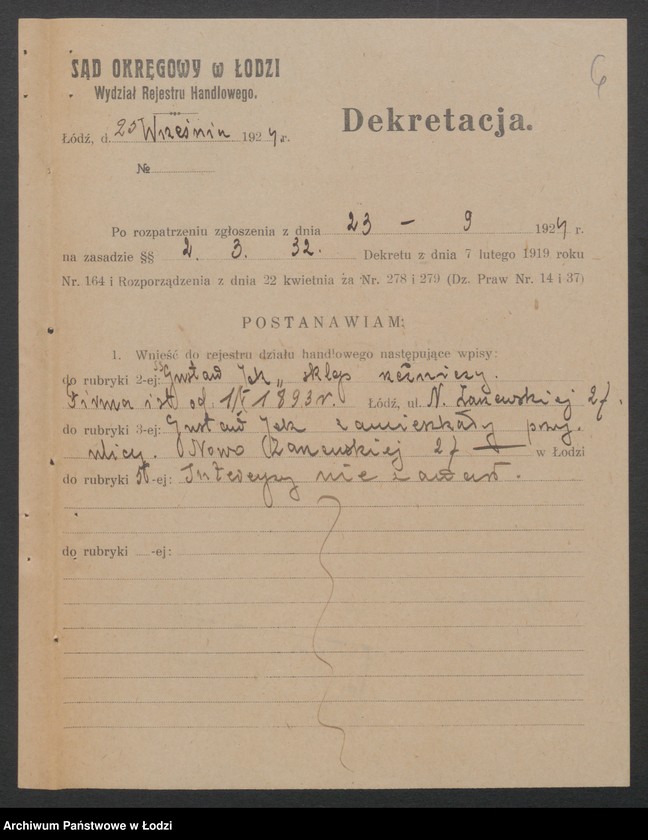 6
SĄD OKRĘGOWY w ŁODZI
Wydział Rejestru Handlowego.
Dekretacja.
Łódź, d. 23 Września 1924 r.
№
Po rozpatrzeniu zgłoszenia z dnia 23 – 9 1924 r.
na zasadzie §§ 2. 3. 32. Dekretu z dnia 7 lutego 1919 roku
Nr. 164 i Rozporządzenia z dnia 22 kwietnia za Nr. 278 i 279 (Dz. Praw Nr. 14 i 37)
POSTANAWIAM:
1. Wnieść do rejestru działu handlowego następujące wpisy:
do rubryki 2-ej: „Gustaw Jek„ sklep rzeźniczy.
Firma ist. od 1/I 1893 r. Łódź, ul. N. Zarzewskiej 27.
do rubryki 3-ej: Gustaw Jek zamieszkały przy
ulicy. Nowo Zarzewskiej 27 — w Łodzi
do rubryki 5-ej: Intercyzy nie zawarł.
do rubryki -ej:
Archiwum Państwowe w Łodzi